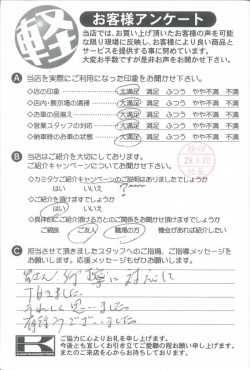 軽
お客様アンケート
当店では、お買い上げ頂いたお客様の声を可能
な限り現場に反映し、お客様により良い商品と
サービスを提供する事に努めています。
大変お手数ですが是非お声をお聞かせ下さい。
A 当店を実際にご利用になった印象をお聞かせ下さい。
◇店の印象 大満足 満足 ふつう やや不満 不満
◇店内・展示場の清掃 大満足 満足 ふつう やや不満 不満
◇お車の品揃え 大満足 満足 ふつう やや不満 不満
◇営業スタッフの対応 大満足 満足 ふつう やや不満 不満
◇納車時のお車の状態 大満足 満足 ふつう やや不満 不満
B 当店はご紹介を大切にしております。
ご紹介キャンペーンについてお聞かせ下さい。
◇カミタケご紹介キャンペーンのご説明はありましたでしょうか
はい いいえ
◇ご紹介を頂けますでしょうか
はい いいえ
◇具体的にご紹介頂ける方とのご関係をお聞かせ頂けますでしょうか
ご親族 ご友人 職場の方 機会があれば紹介したい
C 担当させて頂きましたスタッフへのご指摘、ご指導メッセージを
お願いします。応援メッセージもぜひお願いします。
皆さん 丁寧に対応して
下さいました。
うれしく思いました
有難うございました
K
ご協力に心よりお礼を申し上げます。
今後とも宜しくお引き立てご愛顧の程お願い申し上げます。
またのご来店を心からお待ちしております。